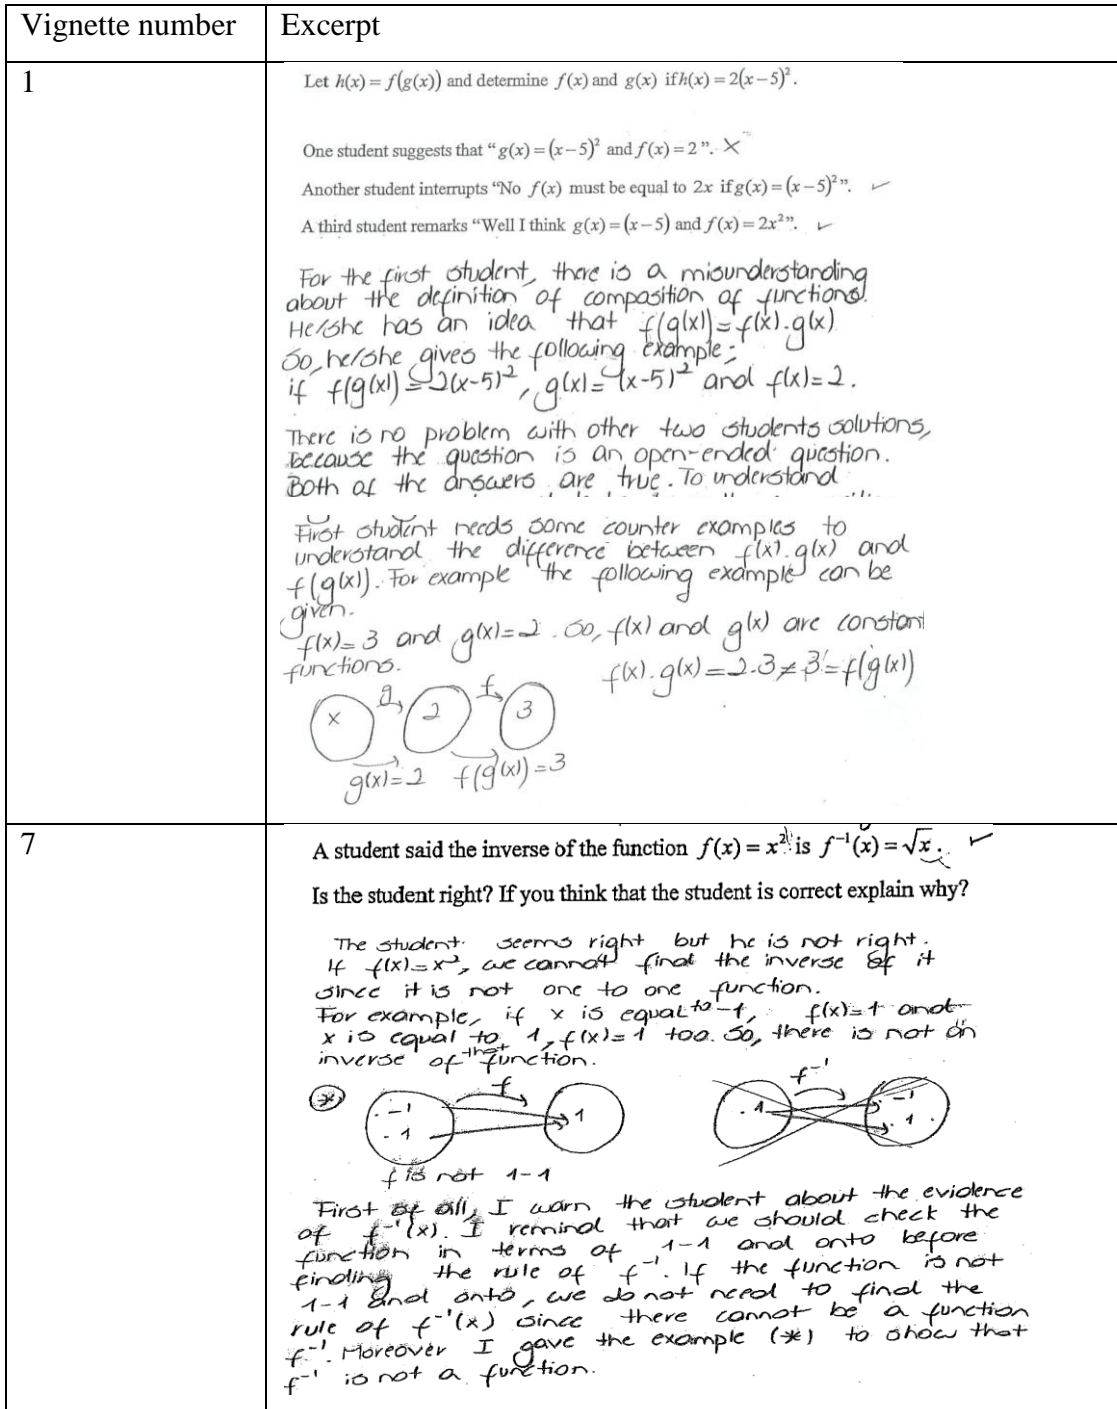 Vignette number Excerpt
1
Let h(x) = f(g(x)) and determine f(x) and g(x) if h(x) = 2(x−5)².
One student suggests that “g(x) = (x−5)² and f(x) = 2”. ✗
Another student interrupts “No f(x) must be equal to 2x if g(x) = (x−5)²”. ✓
A third student remarks “Well I think g(x) = (x−5) and f(x) = 2x²”. ✓
For the first student, there is a misunderstanding
about the definition of composition of functions.
He/she has an idea that f(g(x)) = f(x).g(x)
So, he/she gives the following example;
if f(g(x)) = 2(x-5)², g(x) = (x-5)² and f(x) = 2.
There is no problem with other two students solutions,
because the question is an open-ended question.
Both of the answers are true. To understand
First student needs some counter examples to
understand the difference between f(x).g(x) and
f(g(x)). For example the following example can be
given.
f(x) = 3 and g(x) = 2. So, f(x) and g(x) are constant
functions.
f(x).g(x) = 2.3 ≠ 3 = f(g(x))
g f
x 2 3
g(x) = 2 f(g(x)) = 3
7
A student said the inverse of the function f(x) = x² is f⁻¹(x) = √x. ✓
Is the student right? If you think that the student is correct explain why?
The student seems right but he is not right.
If f(x) = x², we cannot find the inverse of it
since it is not one to one function.
For example, if x is equal to -1, f(x) = 1 and
x is equal to 1, f(x) = 1 too. So, there is not an
inverse of that function.
(*) f f⁻¹
. -1 1 . 1 . -1
. 1 . 1
f is not 1-1
First of all, I warn the student about the evidence
of f⁻¹(x). I remind that we should check the
function in terms of 1-1 and onto before
finding the rule of f⁻¹. If the function is not
1-1 and onto, we do not need to find the
rule of f⁻¹(x) since there cannot be a function
f⁻¹. Moreover I gave the example (*) to show that
f⁻¹ is not a function.